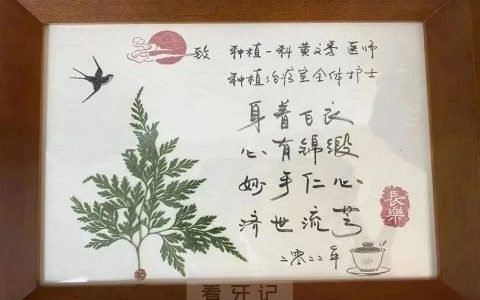 致 种植一科黄文秀医师
种植治疗室全体护士
身着白衣
心有锦缎
妙手仁心
济世流芳
二零二二年
長樂
看牙记